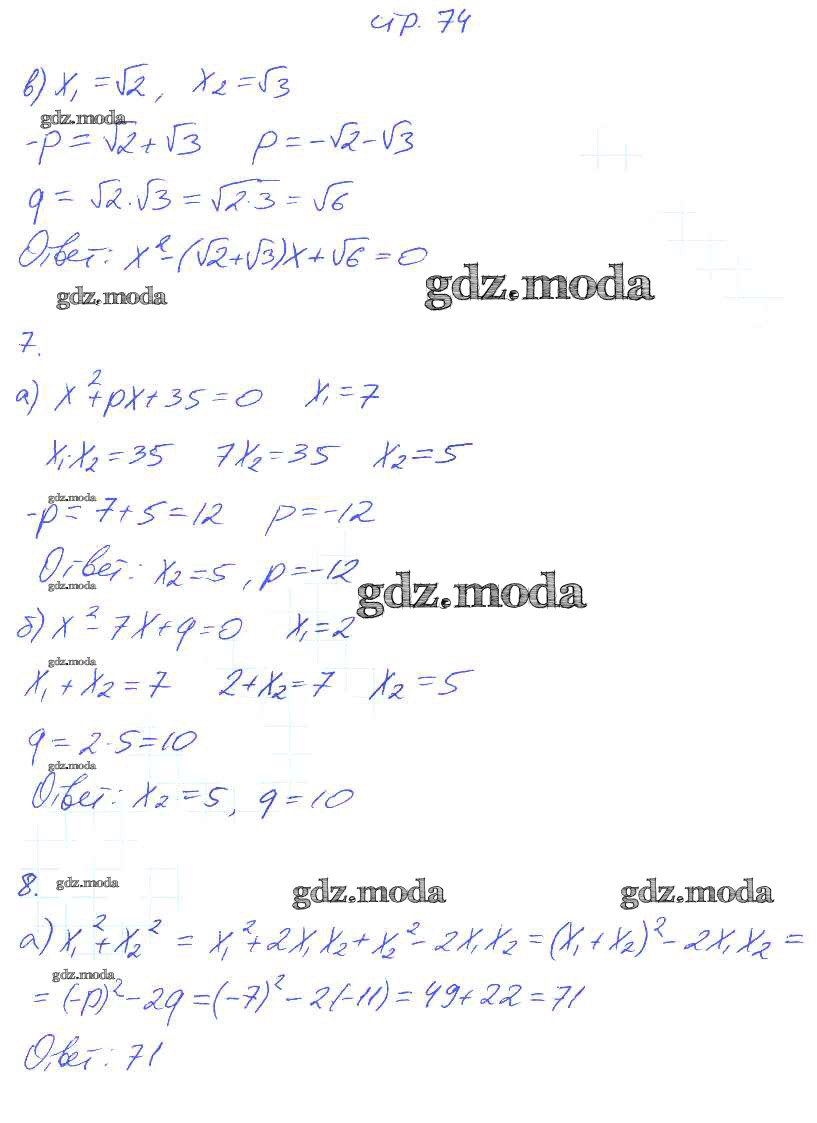 стр. 74
в) x₁ = √2, x₂ = √3
gdz.moda
-p = √2 + √3 p = -√2 - √3
q = √2 · √3 = √2·3 = √6
Ответ: x² - (√2 + √3)x + √6 = 0
gdz.moda
gdz.moda
7.
а) x² + px + 35 = 0 x₁ = 7
x₁·x₂ = 35 7x₂ = 35 x₂ = 5
gdz.moda
-p = 7 + 5 = 12 p = -12
Ответ: x₂ = 5, p = -12
gdz.moda
gdz.moda
б) x² - 7x + q = 0 x₁ = 2
gdz.moda
x₁ + x₂ = 7 2 + x₂ = 7 x₂ = 5
q = 2 · 5 = 10
gdz.moda
Ответ: x₂ = 5, q = 10
8.
gdz.moda
gdz.moda
gdz.moda
а) x₁² + x₂² = x₁² + 2x₁x₂ + x₂² - 2x₁x₂ = (x₁ + x₂)² - 2x₁x₂ =
gdz.moda
= (-p)² - 2q = (-7)² - 2(-11) = 49 + 22 = 71
Ответ: 71